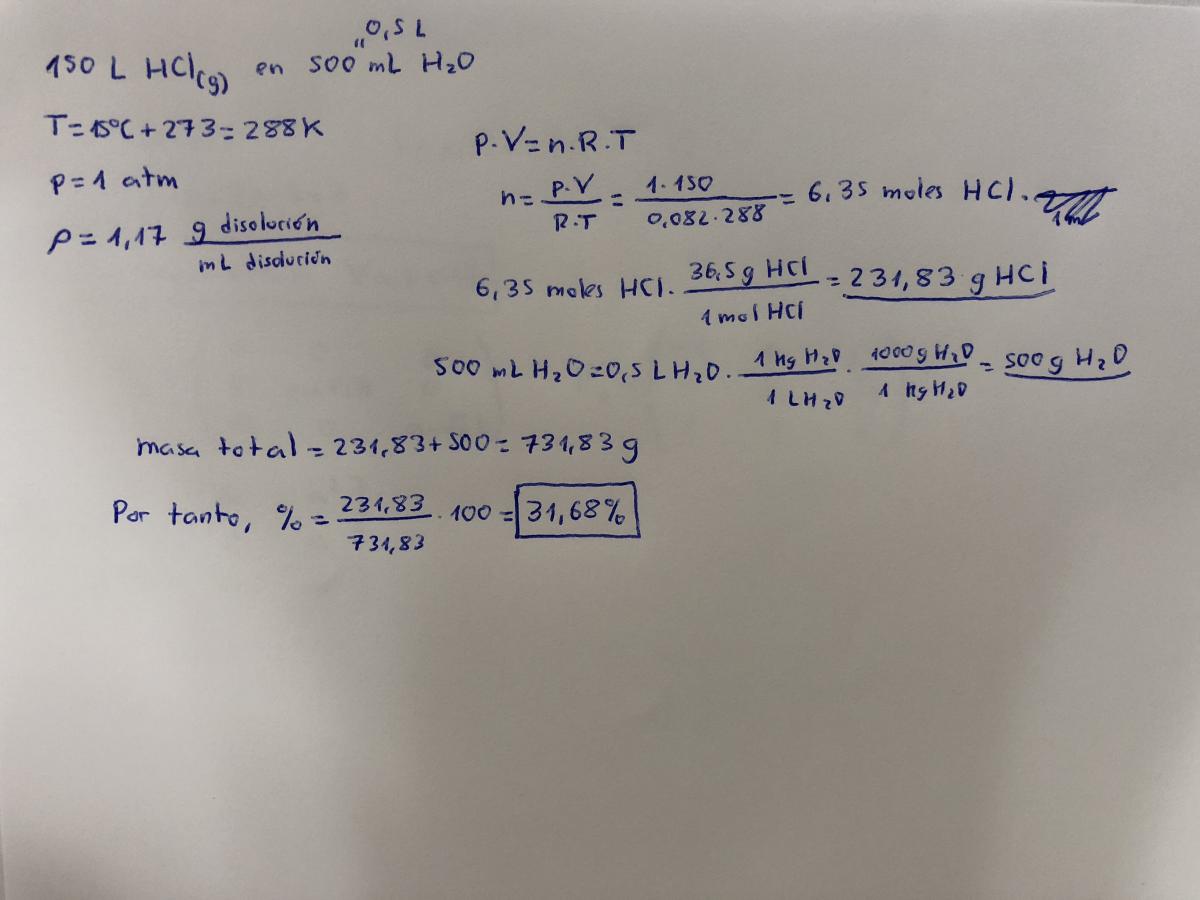 0,5 L
"
150 L HCl(g) en 500 mL H₂O
T=15ºC+273=288K
p=1 atm
ρ=1,17 g disolución / mL disolución
p.V=n.R.T
n= p.V / R.T = 1.150 / 0,082.288 = 6,35 moles HCl.
6,35 moles HCl. 36,5 g HCl / 1 mol HCl = 231,83 g HCl
500 mL H₂O=0,5 L H₂O. 1 kg H₂O / 1 L H₂O . 1000g H₂O / 1 kg H₂O = 500 g H₂O
masa total = 231,83+500= 731,83 g
Por tanto, % = 231,83 / 731,83 . 100 = 31,68%